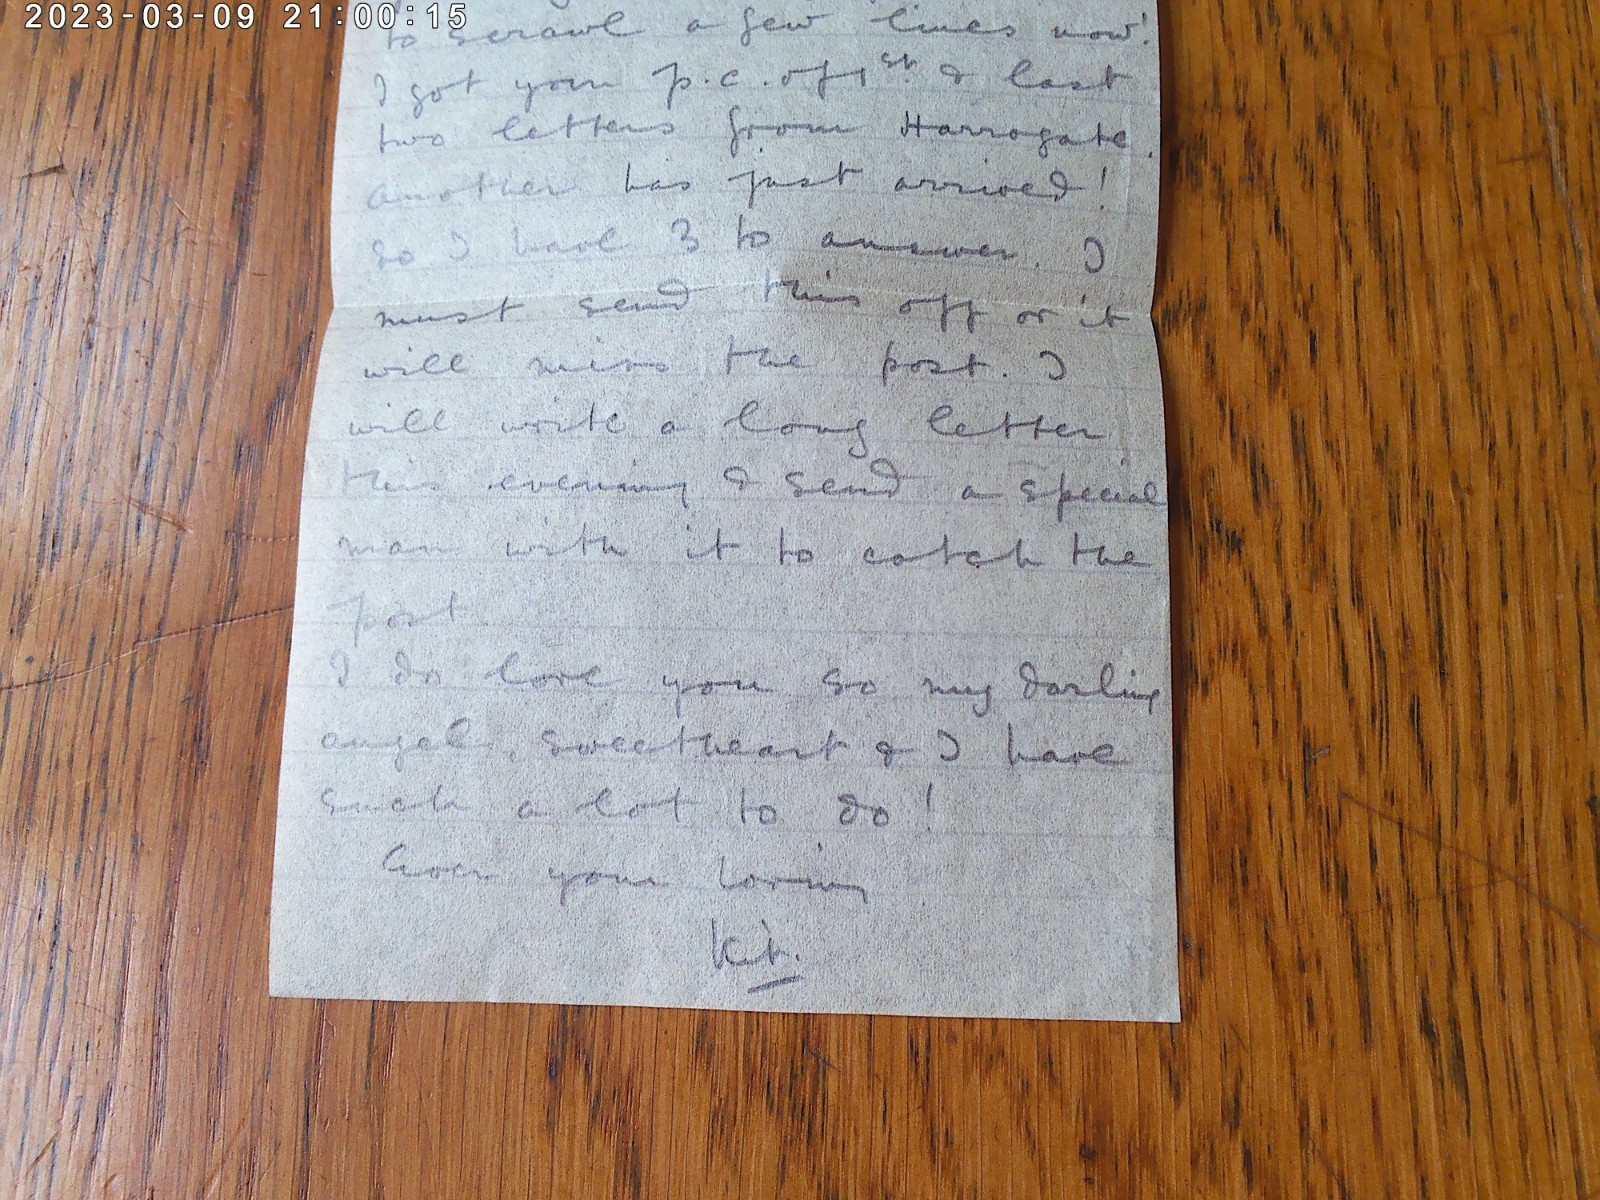 2023-03-09 21:00:15
to scrawl a few lines now!
I got your p.c. of 1st & last
two letters from Harrogate.
another has just arrived!
So I have 3 to answer. I
must send this off or it
will miss the post. I
will write a long letter
this evening & send a special
man with it to catch the
post
I do love you so my darling
angel, sweetheart & I have
such a lot to do!
Ever your loving
Kit.